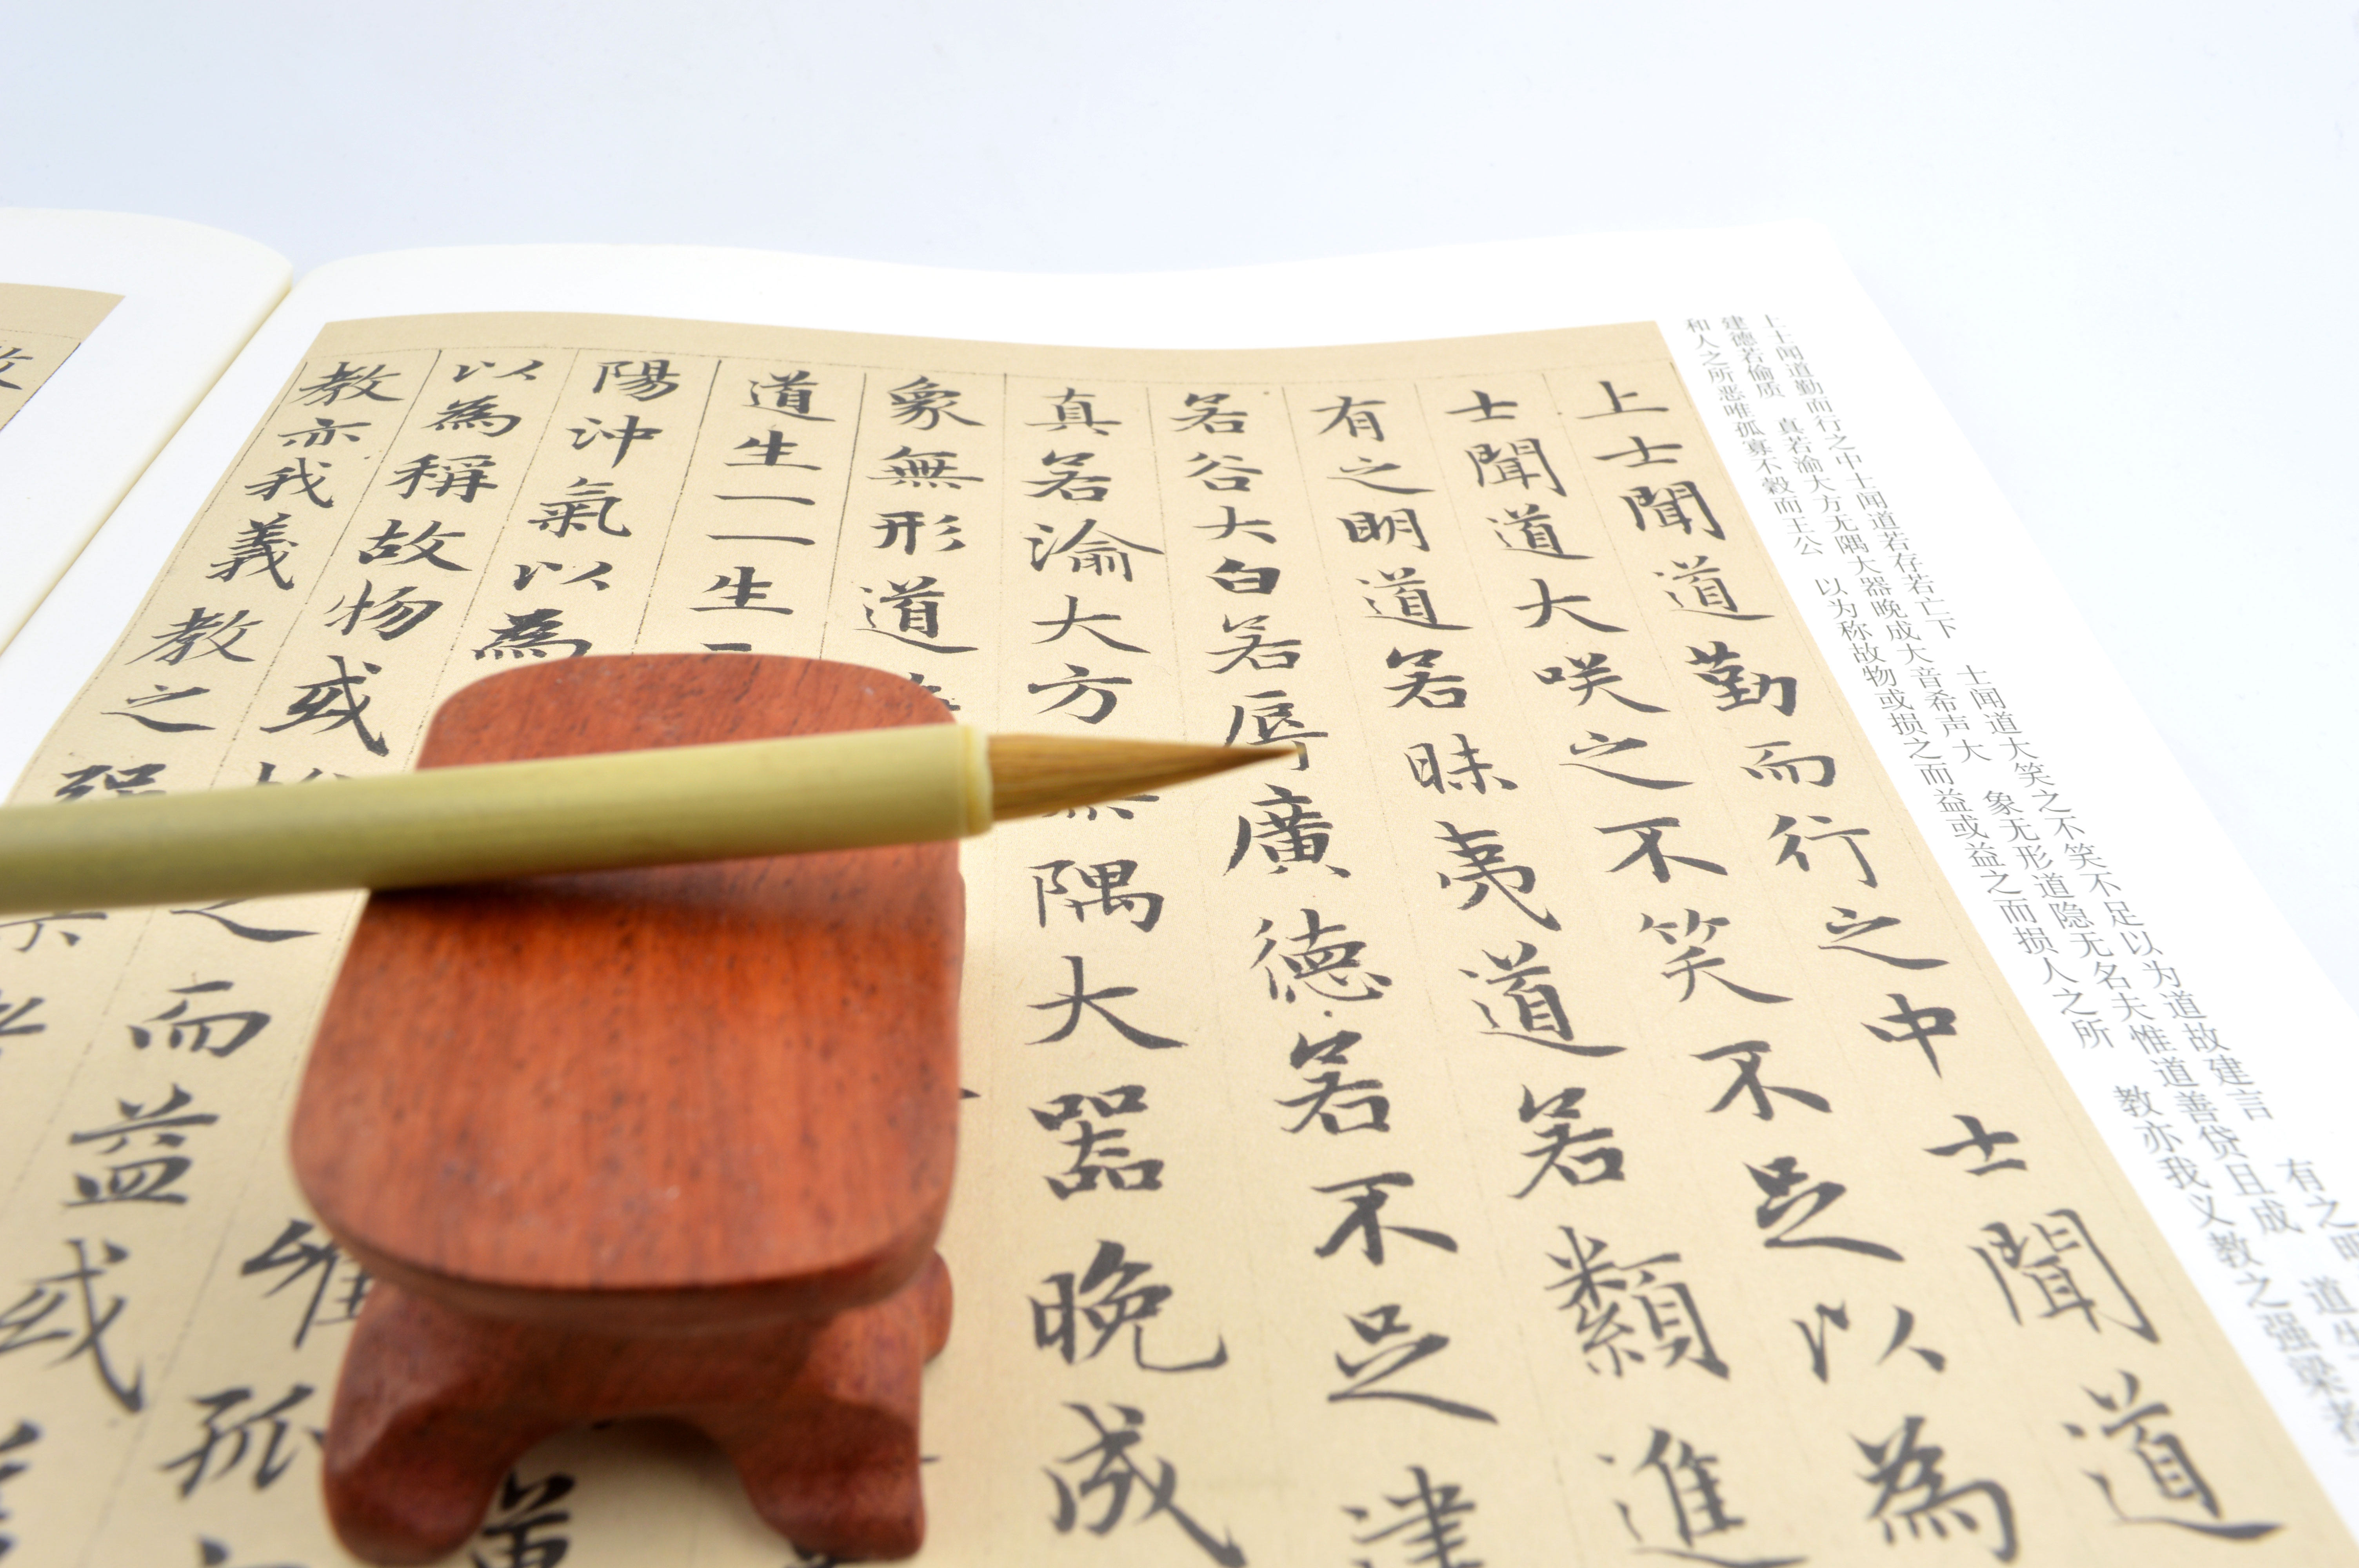 上士闻道勤而行之中士闻道若存若亡下 士闻道大笑之不笑不足以为道故建言 有之明 道
建德若偷质 真若渝大方无隅大器晚成大音希声大 象无形道隐无名夫惟道善贷且成 道生
和人之所恶唯孤寡不穀而王公 以为称故物或损之而益或益之而损人之所 教亦我义教之强梁者
上士聞道勤而行之中士聞道
士聞道大咲之不笑不足以為
有之明道若昧夷道若類進
若谷大白若辱廣德若不足建
真若渝大方無隅大器晚成
象無形道
道生一二生
陽沖氣以為 唯孤
以為稱故物或 之而益或
教亦我義教之强